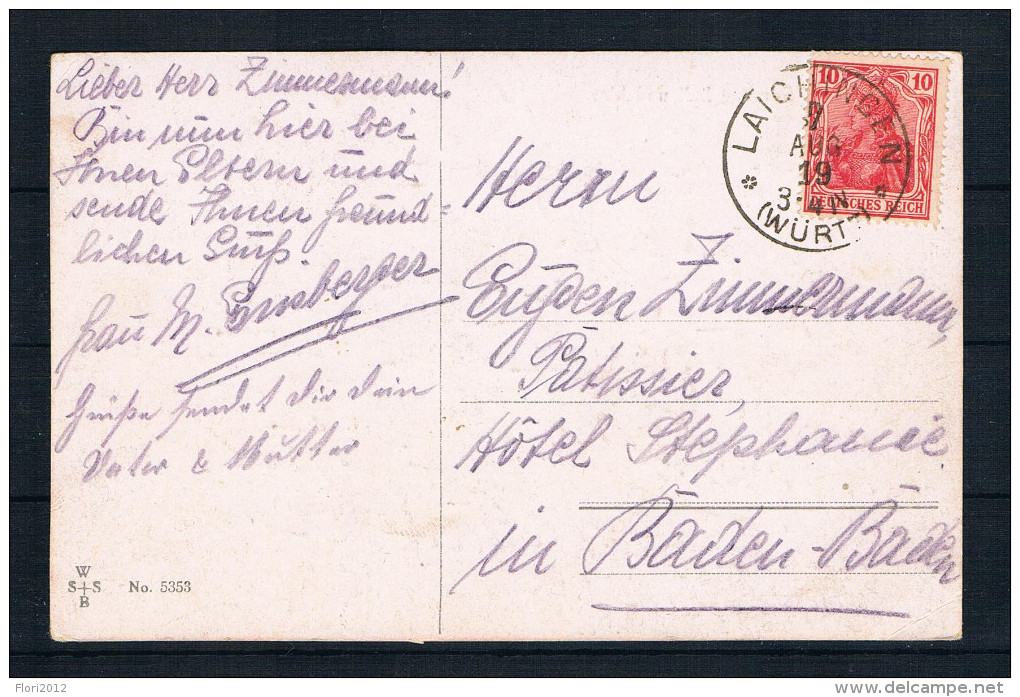 Lieber Herr Zimmermann!
Bin nun hier bei
Ihren Eltern und
sende Ihnen freund-
lichen Gruß.
Frau M.
Grüße sendet Dir Dein
Vater & Mutter
W
S S
B
No. 5353
10 10
DEUTSCHES REICH
LAICHINGEN
AUG
19
3-4 N
(WÜRTT)
Herrn
Eugen Zimmermann,
Patissier,
Hôtel Stephanie
in Baden-Baden
Flori2012
delcampe.net